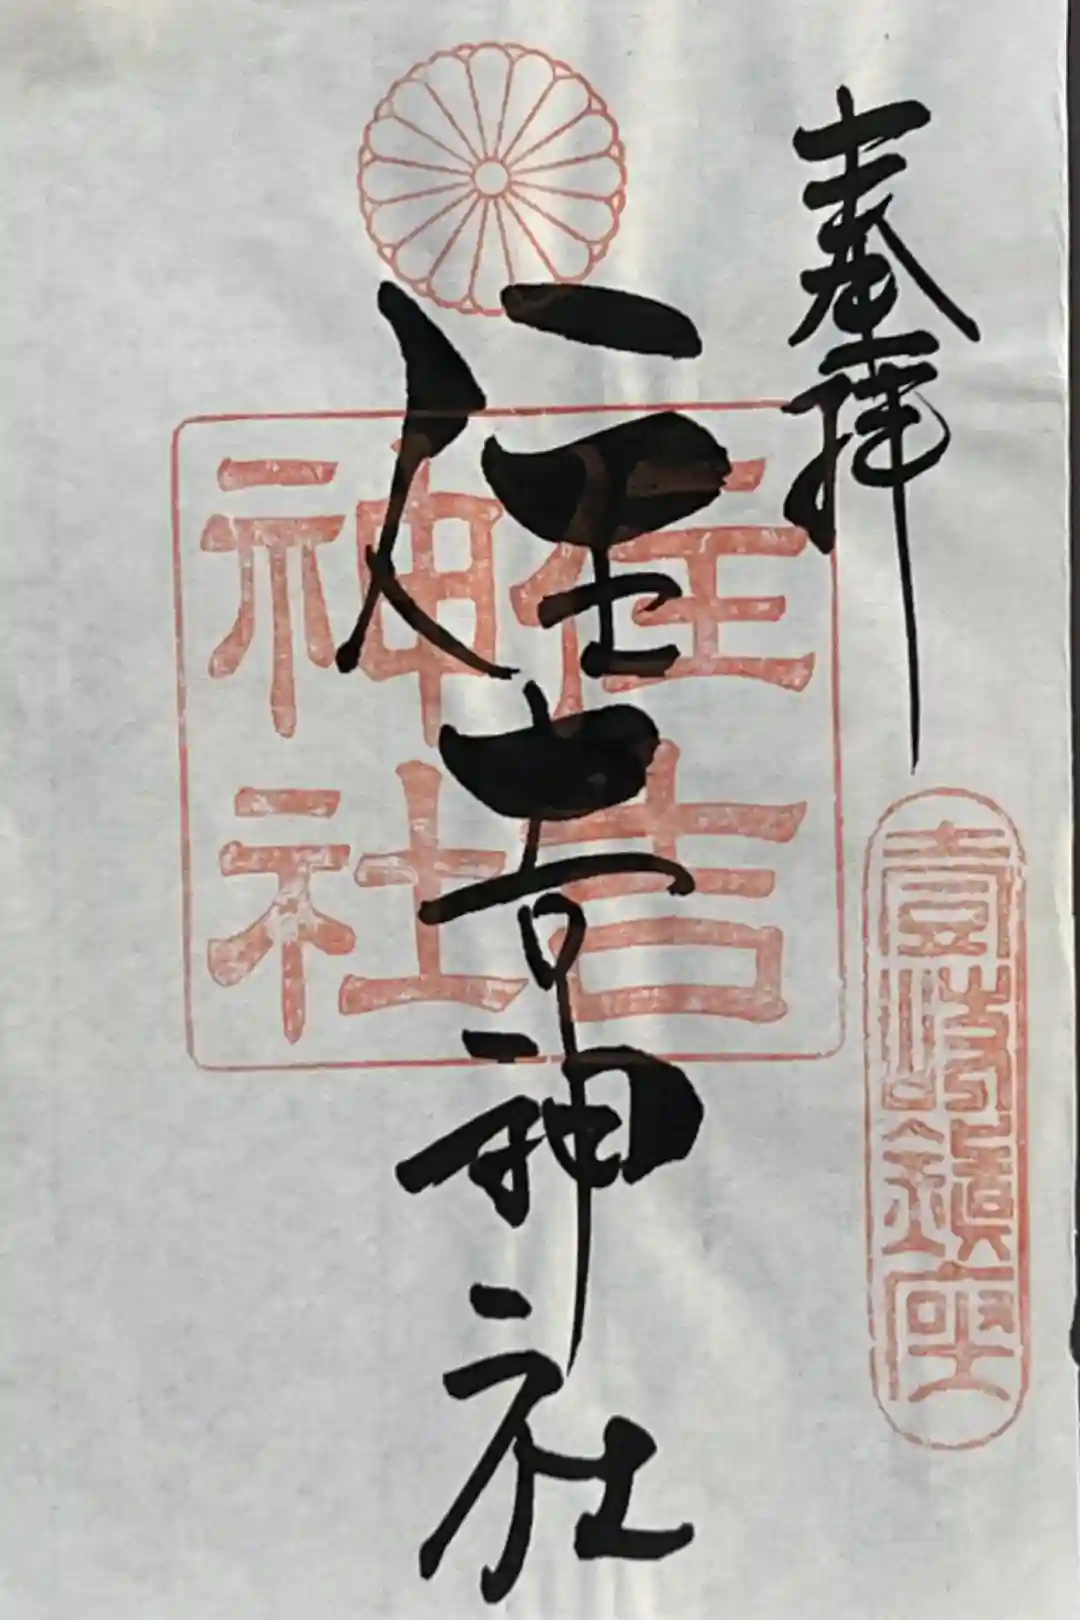 奉拝
壱岐鎮座
住吉神社
住吉
神社